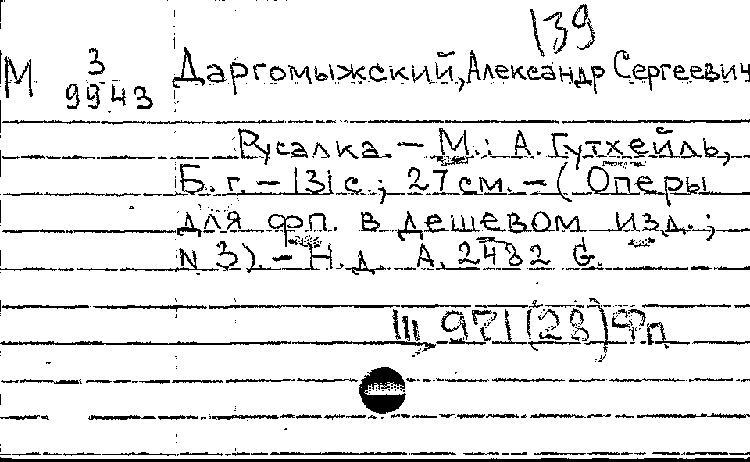 139
М 3/9943 Даргомыжский, Александр Сергеевич
Русалка. — М.: А. Гутхейль,
Б. г. — 131 с.; 27 см. — (Оперы
для фп. в дешевом изд.;
N 3). — Н. д. А. 2482 G.
III 971(28)Фп